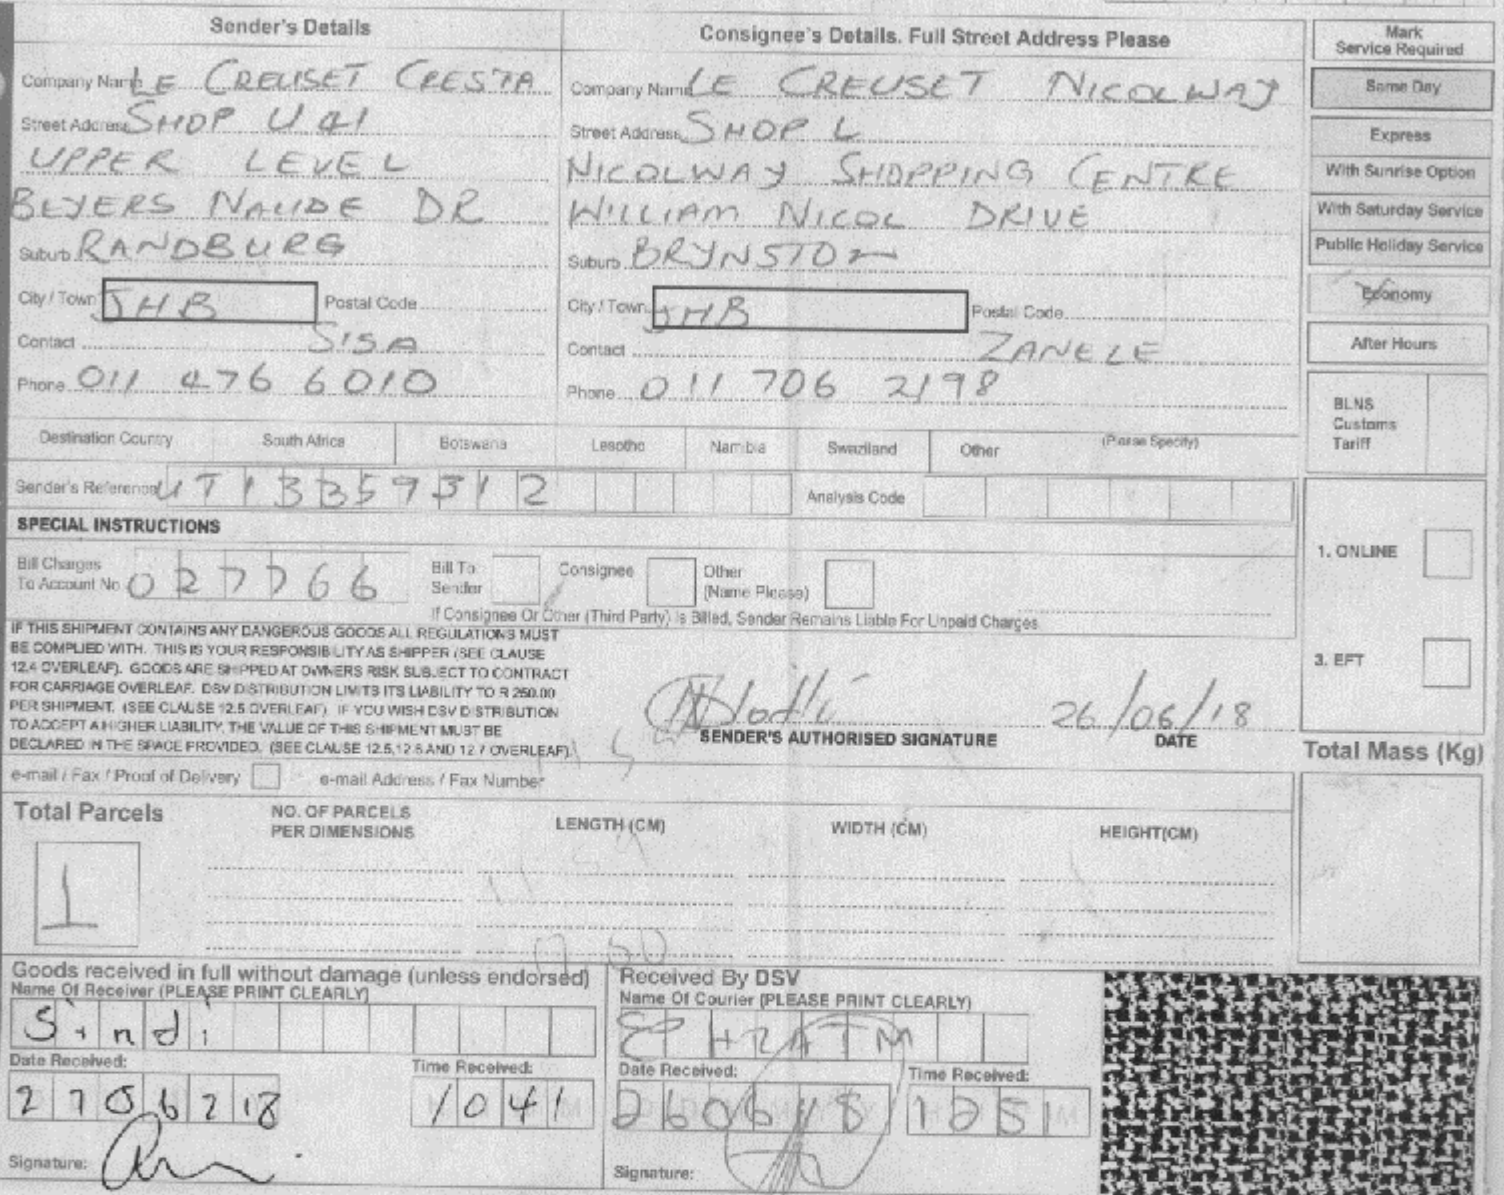 Sender's Details
Company Name LE CREUSET CRESTA
Street Address SHOP U 41
UPPER LEVEL
BEYERS NAUDE DR
Suburb RANDBURG
City / Town JHB Postal Code
Contact SISA
Phone 011 476 6010
Consignee's Details. Full Street Address Please
Company Name LE CREUSET NICOLWAY
Street Address SHOP L
NICOLWAY SHOPPING CENTRE
WILLIAM NICOL DRIVE
Suburb BRYNSTON
City / Town JHB Postal Code
Contact ZANELE
Phone 011 706 2198
Mark
Service Required
Same Day
Express
With Sunrise Option
With Saturday Service
Public Holiday Service
Economy
After Hours
BLNS
Customs
Tariff
Destination Country South Africa Botswana Lesotho Namibia Swaziland Other (Please Specify)
Sender's Reference UT13359312 Analysis Code
SPECIAL INSTRUCTIONS
Bill Charges
To Account No 027766
Bill To
Sender
Consignee
Other
(Name Please)
If Consignee Or Other (Third Party) Is Billed, Sender Remains Liable For Unpaid Charges
1. ONLINE
3. EFT
IF THIS SHIPMENT CONTAINS ANY DANGEROUS GOODS ALL REGULATIONS MUST
BE COMPLIED WITH. THIS IS YOUR RESPONSIBILITY AS SHIPPER (SEE CLAUSE
12.4 OVERLEAF). GOODS ARE SHIPPED AT OWNERS RISK SUBJECT TO CONTRACT
FOR CARRIAGE OVERLEAF. DSV DISTRIBUTION LIMITS ITS LIABILITY TO R 250.00
PER SHIPMENT. (SEE CLAUSE 12.5 OVERLEAF) IF YOU WISH DSV DISTRIBUTION
TO ACCEPT A HIGHER LIABILITY, THE VALUE OF THIS SHIPMENT MUST BE
DECLARED IN THE SPACE PROVIDED. (SEE CLAUSE 12.5,12.6 AND 12.7 OVERLEAF)
SENDER'S AUTHORISED SIGNATURE
26/06/18
DATE
e-mail / Fax / Proof of Delivery e-mail Address / Fax Number
Total Mass (Kg)
Total Parcels
1
NO. OF PARCELS
PER DIMENSIONS
LENGTH (CM) WIDTH (CM) HEIGHT(CM)
Goods received in full without damage (unless endorsed)
Name Of Receiver (PLEASE PRINT CLEARLY)
Sindi
Date Received: Time Received:
2706218 1041
Signature:
Received By DSV
Name Of Courier (PLEASE PRINT CLEARLY)
EPHRAIM
Date Received: Time Received:
260618 1251
Signature: